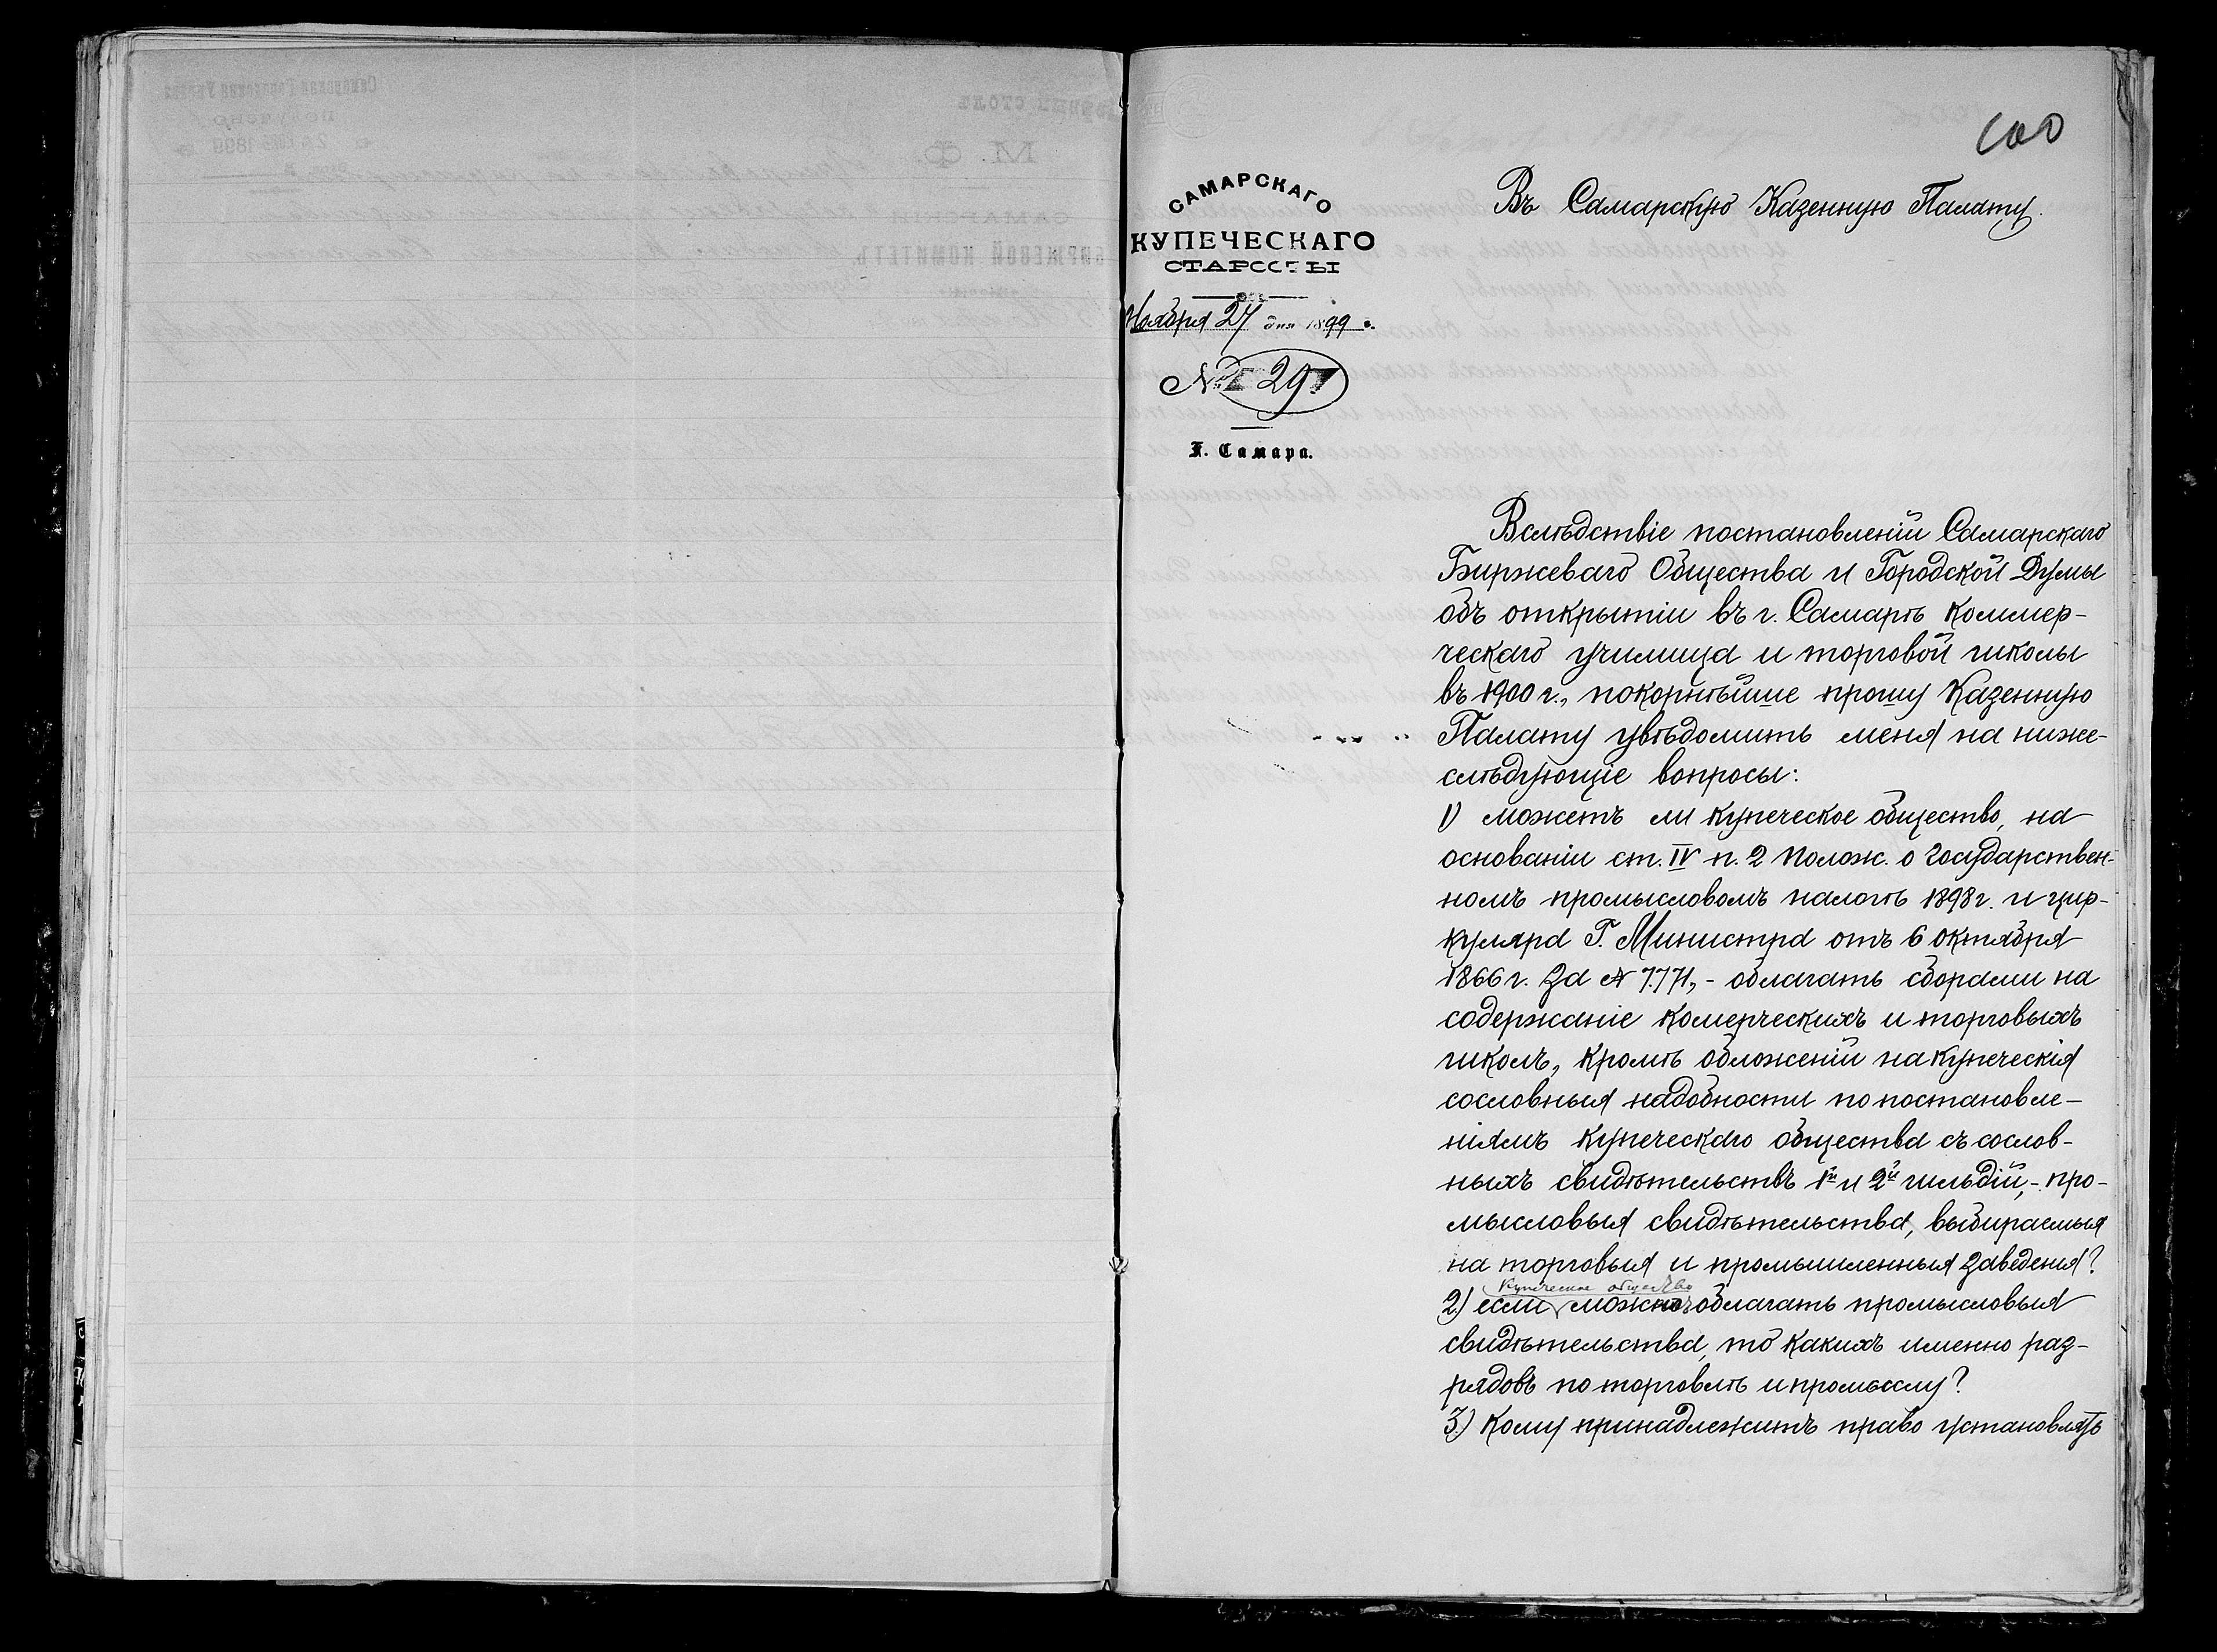 100
САМАРСКАГО
КУПЕЧЕСКАГО
СТАРОСТЫ
Ноября 27 дня 1899 г.
№ 291
Г. Самара.
Въ Самарскую Казенную Палату.
Вслѣдствіе постановленій Самарскаго
Биржеваго Общества и Городской Думы
объ открытіи въ г. Самарѣ Коммер-
ческаго училища и торговой школы
въ 1900 г., покорнѣйше прошу Казенную
Палату увѣдомить меня на ниже-
слѣдующіе вопросы:
1) можетъ ли купеческое общество, на
основаніи ст. IV п. 2 Полож. о Государствен-
номъ промысловомъ налогѣ 1898 г. и цир-
куляра Г. Министра отъ 6 Октября
1866 г. за № 7.771, - облагать сборами на
содержаніе комерческихъ и торговыхъ
школъ, кромѣ обложеній на купеческія
сословныя надобности по постановле-
ніямъ купеческаго общества съ сослов-
ныхъ свидѣтельствъ 1й и 2й гильдій, - про-
мысловыя свидѣтельства, выбираемыя
на торговыя и промышленныя заведенія?
купеческое общество
2) если можно облагать промысловыя
свидѣтельства, то какихъ именно раз-
рядовъ по торговлѣ и промыслу?
3) Кому принадлежитъ право установлять